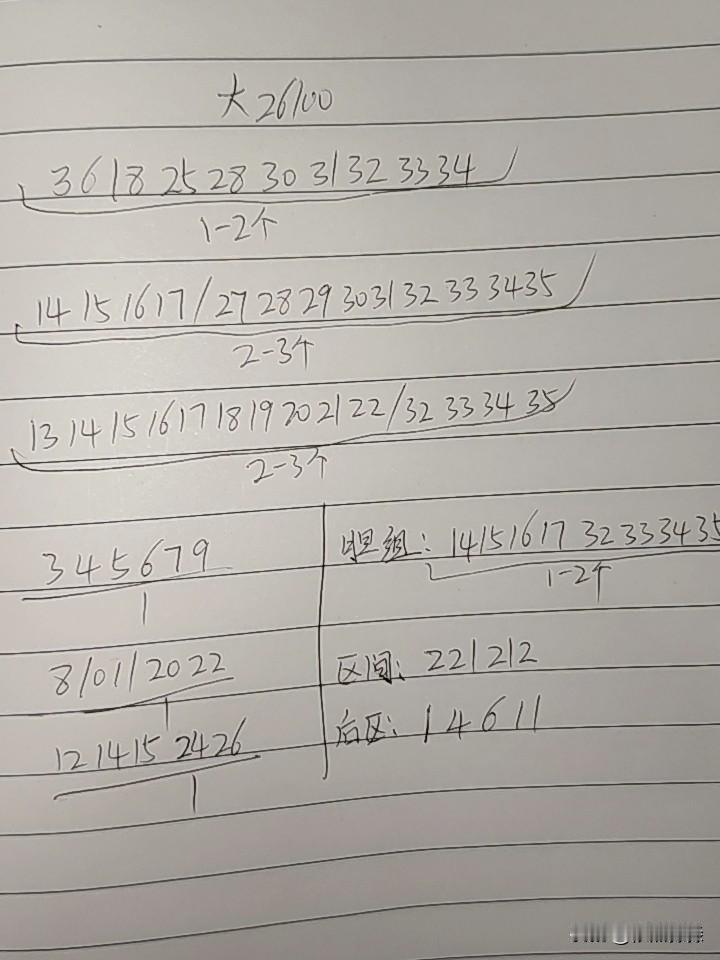 大26100
3 6 18 25 28 30 31 32 33 34
1-2个
14 15 16 17/27 28 29 30 31 32 33 34 35
2-3个
13 14 15 16 17 18 19 20 21 22/32 33 34 35
2-3个
3 4 5 6 7 9
1
8 10 11 20 22
1
12 14 15 24 26
1
胆组: 14 15 16 17 32 33 34 35
1-2个
区间: 221 212
后区: 1 4 6 11